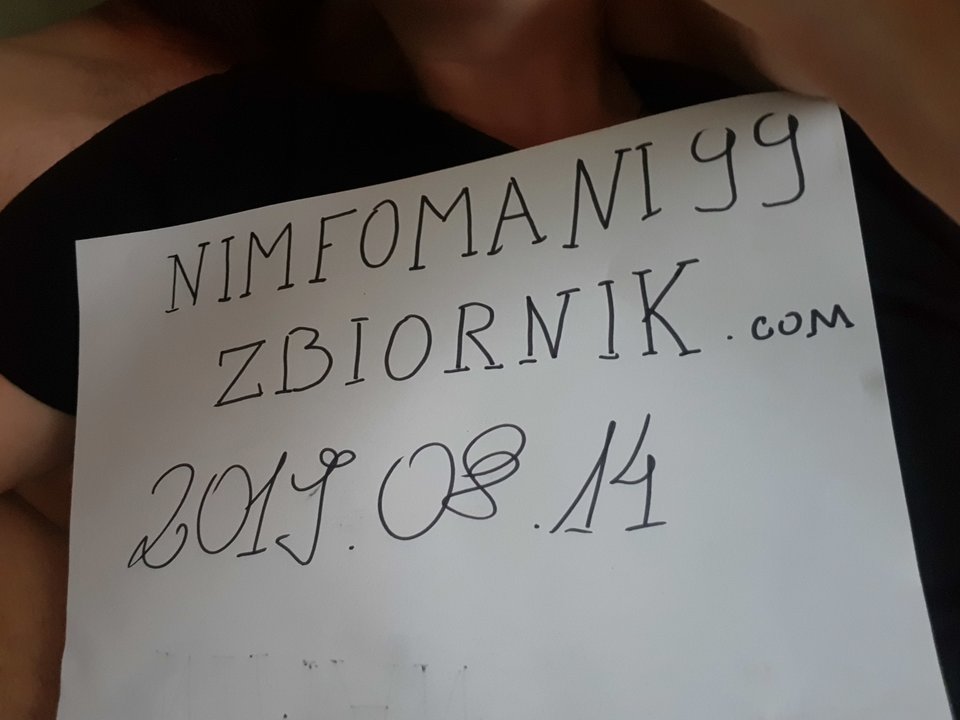 NIMFOMANI99
ZBIORNIK.COM
2019.08.14